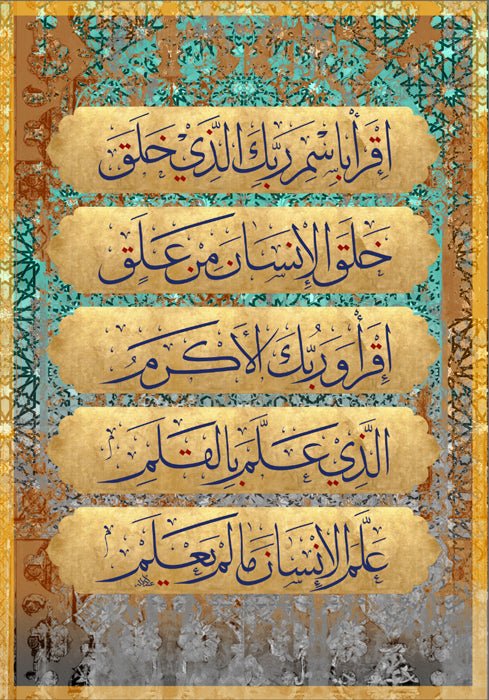 اِقْرَأْ بِاسْمِ رَبِّكَ الَّذِيْ خَلَقَ
خَلَقَ الإِنْسَانَ مِنْ عَلَقٍ
اِقْرَأْ وَرَبُّكَ الأَكْرَمُ
الَّذِي عَلَّمَ بِالقَلَمِ
عَلَّمَ الإِنْسَانَ مَا لَمْ يَعْلَمْ